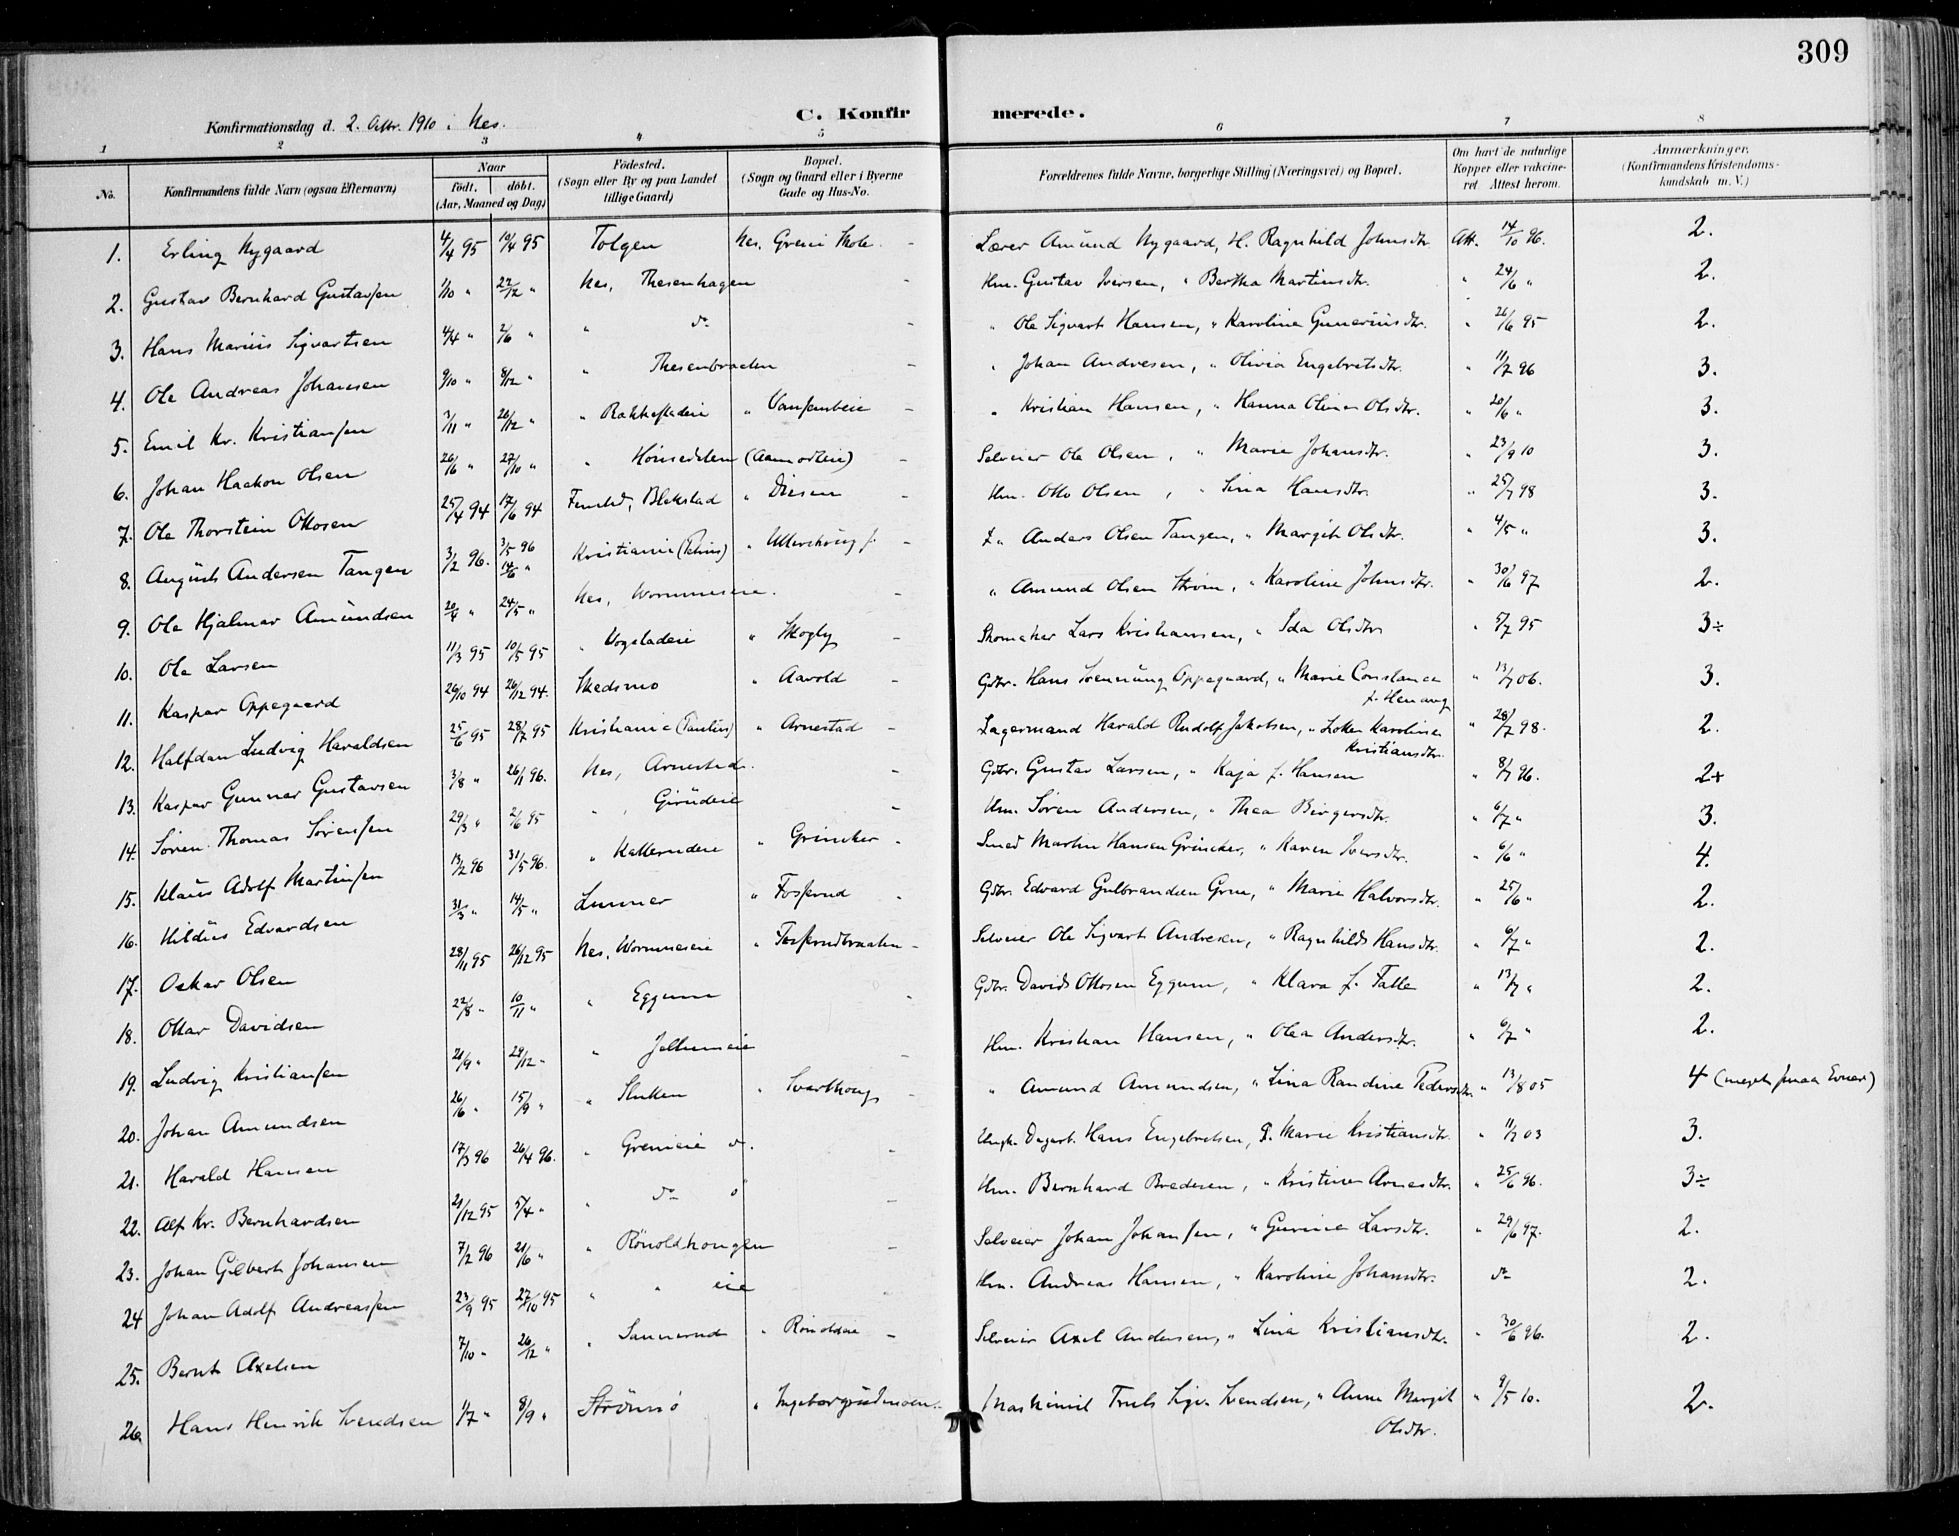 309
Konfirmationsdag d. 2. Octbr. 1910 i Nes.
C. Konfirmerede.
1 2 3 4 5 6 7 8
No. Konfirmandens fulde Navn (ogsaa Efternavn) Naar født, døbt. (Aar, Maaned og Dag) Fødested. (Sogn eller By og paa Landet tillige Gaard) Bopæl. (Sogn og Gaard eller i Byerne Gade og Hus-No. Forældrenes fulde Navne, borgerlige Stilling (Næringsvei) og Bopæl. Om havt de naturlige Kopper eller vakcineret. Attest herom. Anmærkninger. (Konfirmandens Kristendomskundskab m. V.)
1. Erling Nygaard 4/4 95 10/4 95 Tolgen Nes. Greni Skole - Lærer Amund Nygaard, H. Ragnhild Johnsdtr. Att. 14/10 96. 2.
2. Gustav Bernhard Gustavsen 1/10 " 22/12 " Nes, Thesenhagen - Hm. Gustav Iversen, " Bertha Martinsdtr. " 24/6 " 2.
3. Hans Marius Sigvartsen 4/4 " 2/6 " " do - " Ole Sigvart Hansen, " Karoline Guneriusdtr. " 26/6 95 2.
4. Ole Andreas Johansen 9/10 " 8/12 " " Thesenbraaten - " Johan Andresen, " Olivia Engebretsdtr. " 11/7 96 3.
5. Emil Kr. Kristiansen 3/11 " 26/12 " " Rakkestadeie " - " Kristian Hansen, " Hanna Oline Olsdtr. " 20/6 " 3.
6. Johan Haakon Olsen 26/6 " 27/10 " " - Selveier Ole Olsen, " Marie Johansdtr. " 23/9 10 3.
7. Ole Thorstein Ottosen 25/4 94 17/6 94 Fenstad, Blekstad " Diesen - Hm. Otto Olsen, " Lina Hansdtr. " 25/7 98 3.
8. August Andersen Tangen 3/2 96. 3/5 96 14/6 " Kristiania (Petrus) " - Anders Olsen Tangen, " Margit Olsdtr. " 4/5 " 3.
9. Ole Hjalmar Amundsen 20/4 " 24/5 " Nes, Wormneseie. - " Amund Olsen Strøm, " Karoline Johnsdtr. " 30/6 97 2.
10. Ole Larsen 11/3 95 10/5 95 " Vogsladeie " Skogly - Skomaker Lars Kristiansen, " Ida Olsdtr " 5/7 95 3÷
11. Kaspar Oppegaard 26/10 94 26/12 94. Skedsmo " Aarold - Gdbr. Hans Svennung Oppegaard, " Marie Constance f. Henaug " 13/7 06. 3.
12. Halfdan Ludvig Haraldsen 25/6 95 28/7 95 Kristiania (Paulus) " Arnestad - Lagermand Harald Rudolf Jakobsen, " Lotte Karoline Kristiansdtr. " 28/7 98. 2.
13. Kaspar Gunnar Gustavsen 3/8 " 26/1 96. Nes, Arnestad. - Gdbr. Gustav Larsen, " Kaja f. Hansen " 8/7 96. 2+
14. Søren Thomas Sørensen 29/3 " 2/6 95 " Girudeie - Hm. Søren Andersen, " Thea Birgersdtr. " 6/7 " 3.
15. Klaus Adolf Martinsen 13/2 96 31/5 96. " Kallerudeie " Grineker - Smed Martin Hansen Grineker, " Karen Iversdtr. " 6/6 " 4.
16. Hildus Edvardsen 31/3 " 14/5 " Lunner " Fosserud - Gdbr. Edvard Gulbrandsen Grue, " Marie Halvorsdtr. " 25/6 " 2.
17. Oskar Olsen 28/11 95 26/12 95 Nes, Wormneseie " Fosserudbraaten - Selveier Ole Sigvart Andresen, " Ragnhild Hansdtr. " 6/7 " 2.
18. Ottar Davidsen 22/8 " 10/11 " " Eggum - Gdbr. David Ottosen Eggum, " Klara f. Falle " 13/7 " 2.
19. Ludvig Kristiansen 21/9 " 29/12 " " - Hm. Kristian Hansen, " Olea Andersdtr. " 6/7 " 2.
20. Johan Amundsen 26/6 " 15/9 " " Sluken " Svarthoug - " Amund Amundsen, " Lina Randine Pedersdtr. " 13/8 05 4 (meget smaa Evner)
21. Harald Hansen 17/3 96 26/4 96. " Grenieie v. - Ungk. Dagarb. Hans Engebretsen, P. Marie Kristiansdtr. " 11/7 03 3.
22. Alf Kr. Bernhardsen 21/12 95 5/4 " " do ö - Hm. Bernhard Bredesen, " Kristine Arnesdtr. " 25/6 96. 3÷
23. Johan Gilbert Johansen 7/2 96 21/6 " " Rönoldhougen - Selveier Johan Johansen, " Gurine Larsdtr. " 29/6 97. 2.
24 Johan Adolf Andreassen 23/9 95 27/10 95 " " eie Hm. Andreas Hansen, " Karoline Johansdtr. do 2.
25. Bernt Axelsen 7/10 " 26/12 " " Sannerud " Rönoldeie - Selveier Axel Andersen, " Lina Kristiansdtr. " 30/6 96. 2.
26 Hans Henrik Svendsen 1/7 " 8/9 " Strömsö " - Maskinist Truls Sigv. Svendsen, " Anne Margit Olsdtr. " 9/5 10. 2.